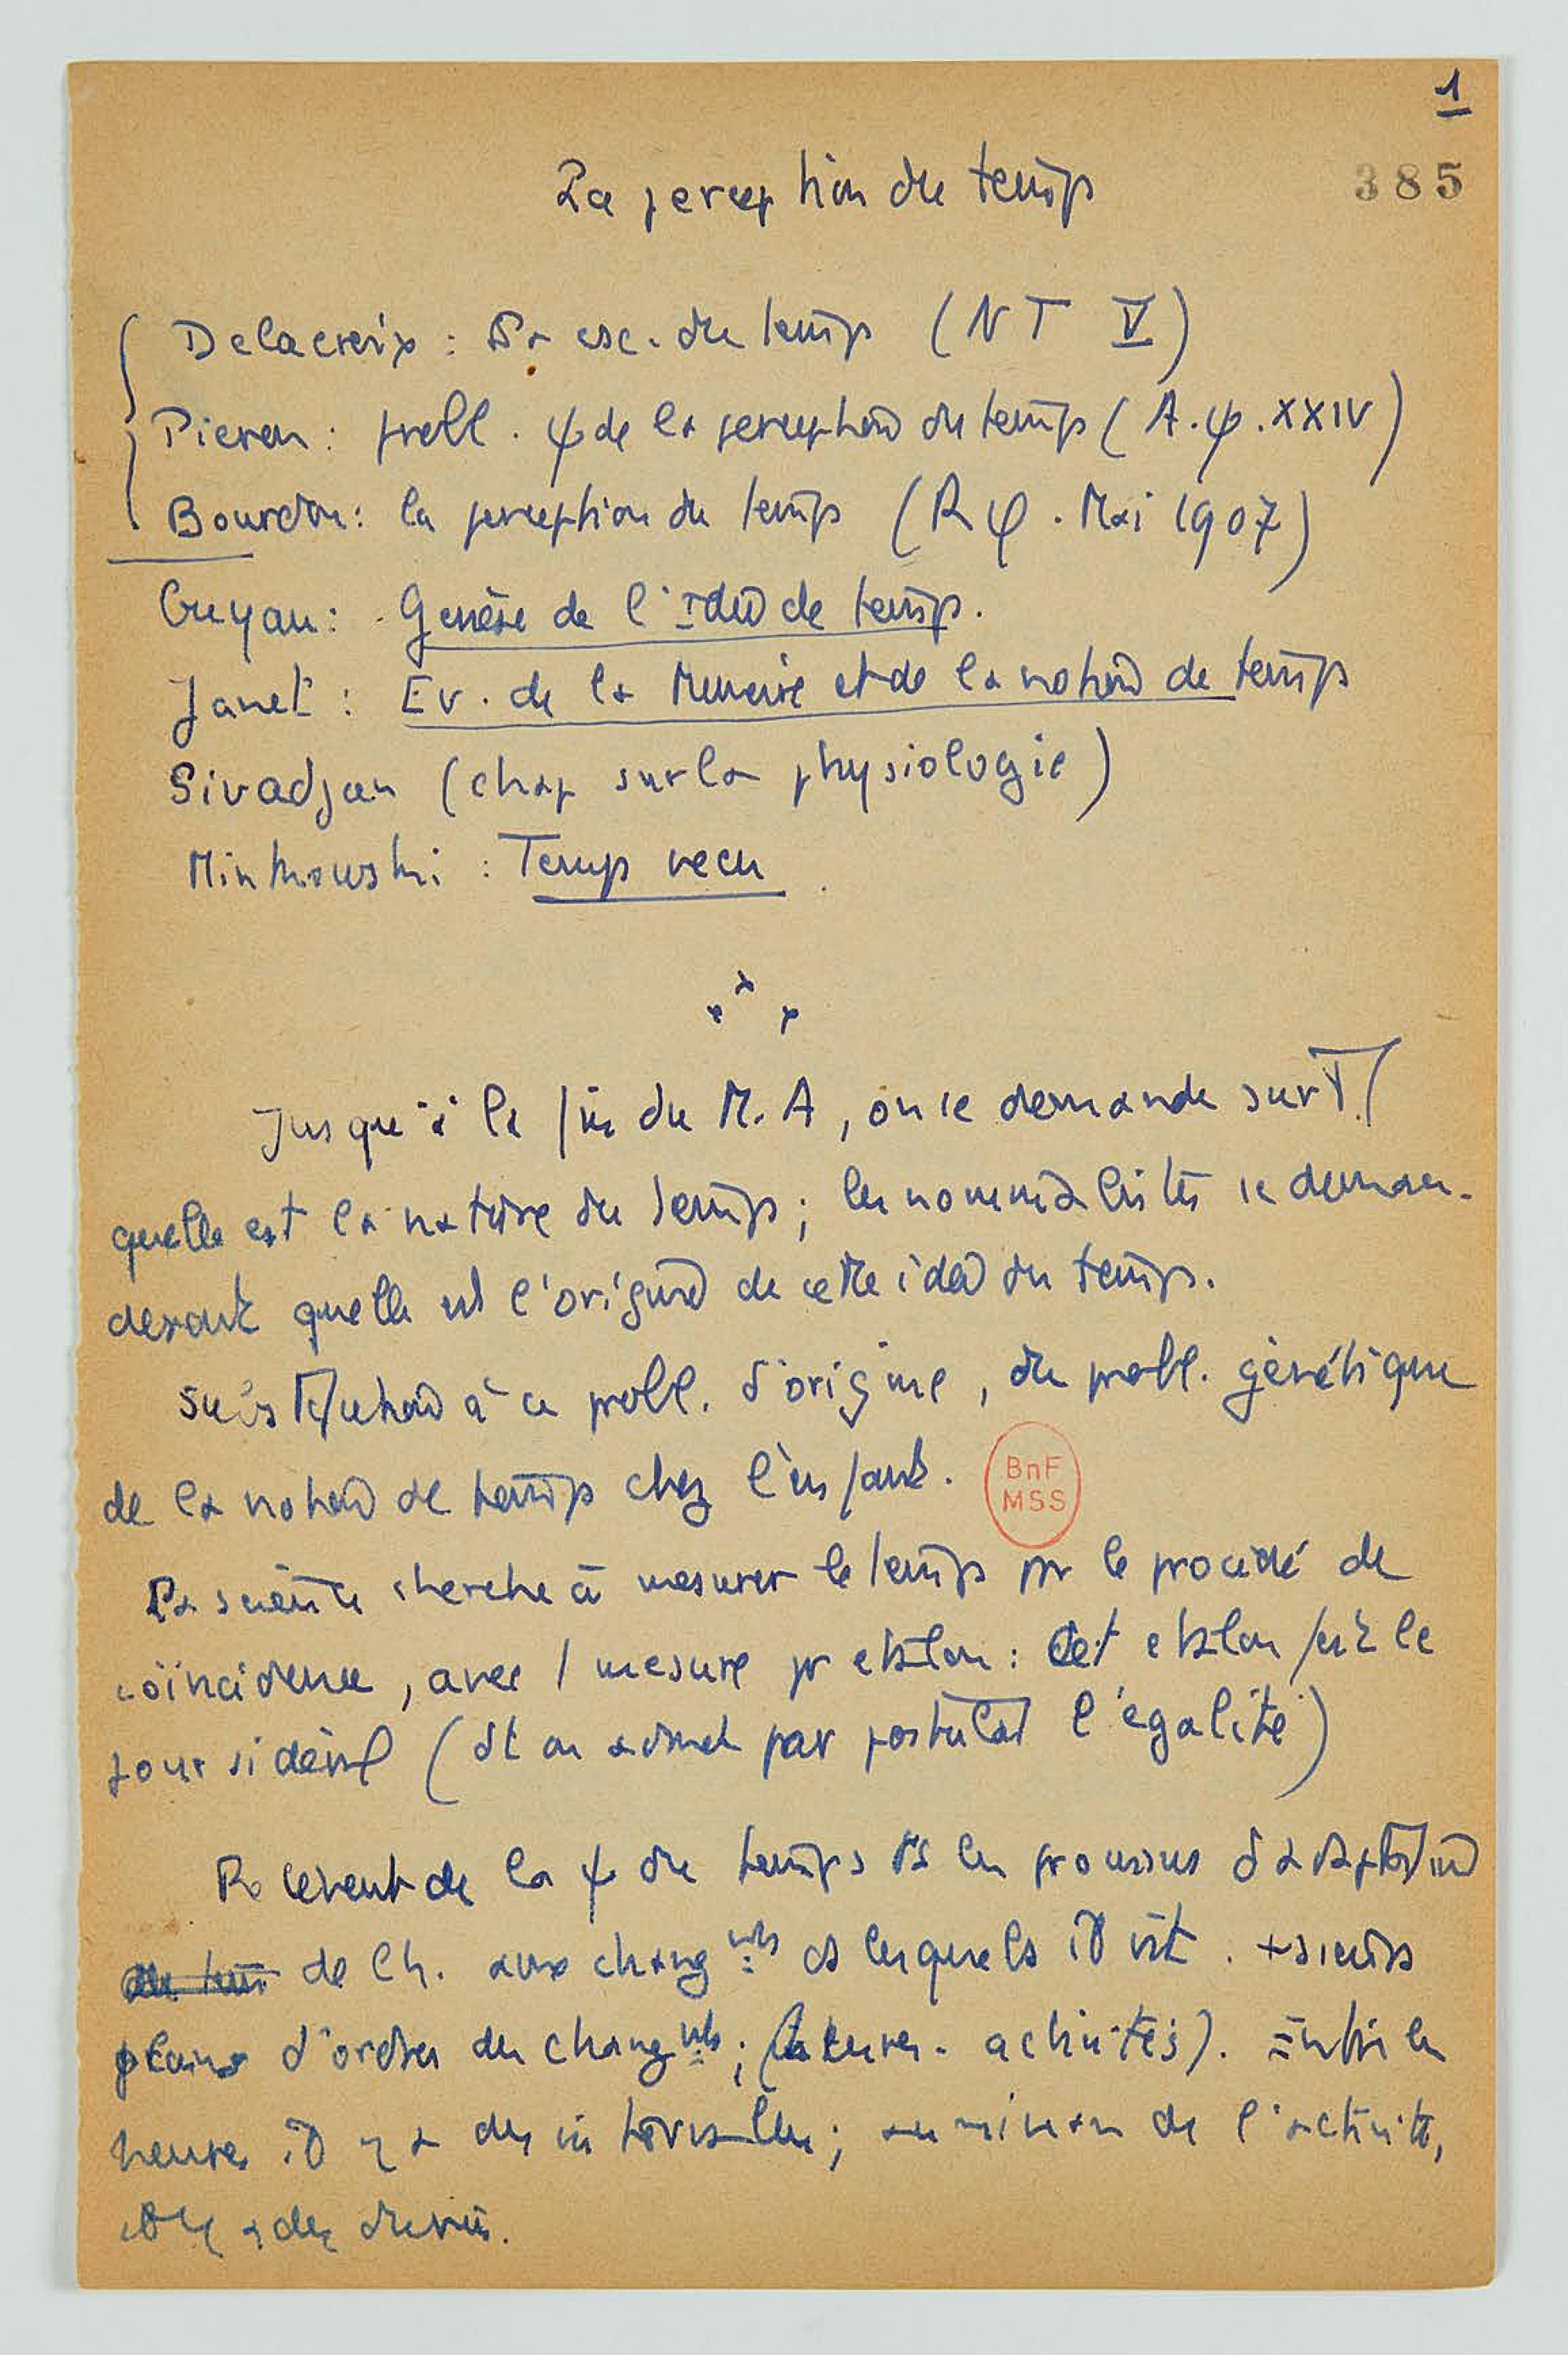 1
La perception du temps
385
Delacroix : La csc. du temps (NT V)
Pieron : probl. ψ de la perception du temps (A.ψ.XXIV)
Bourdon : la perception du temps (R φ. Mai 1907)
Guyau : Genèse de l'idée de temps.
Janet : Ev. de la Mémoire et de la notion de temps
Sivadjan (chap sur la physiologie)
Minkowski : Temps vecu.
Jusqu'à la fin du M.A, on se demande surT
quelle est la nature du temps ; les nominalistes se deman-
deront quelle est l'origine de cette idée du temps.
Substitution à ce probl. d'origine, du probl. génétique
de la notion de temps chez l'enfant.
BnF
MSS
La science cherche à mesurer le temps pr le procédé de
coïncidence, avec 1 mesure pr etalon : Cet etalon fut le
jour sidéral (dt on admet par postulat l'égalité)
Relèvent de la ψ du temps ts les processus d'adaptation
de l'h. aux changmts ds lesquels il vit. +sieurs
plans d'ordres des changmts ; (heures - activités). Entre les
heures il y a des intervalles ; au niveau de l'activité,
il y a des durées.